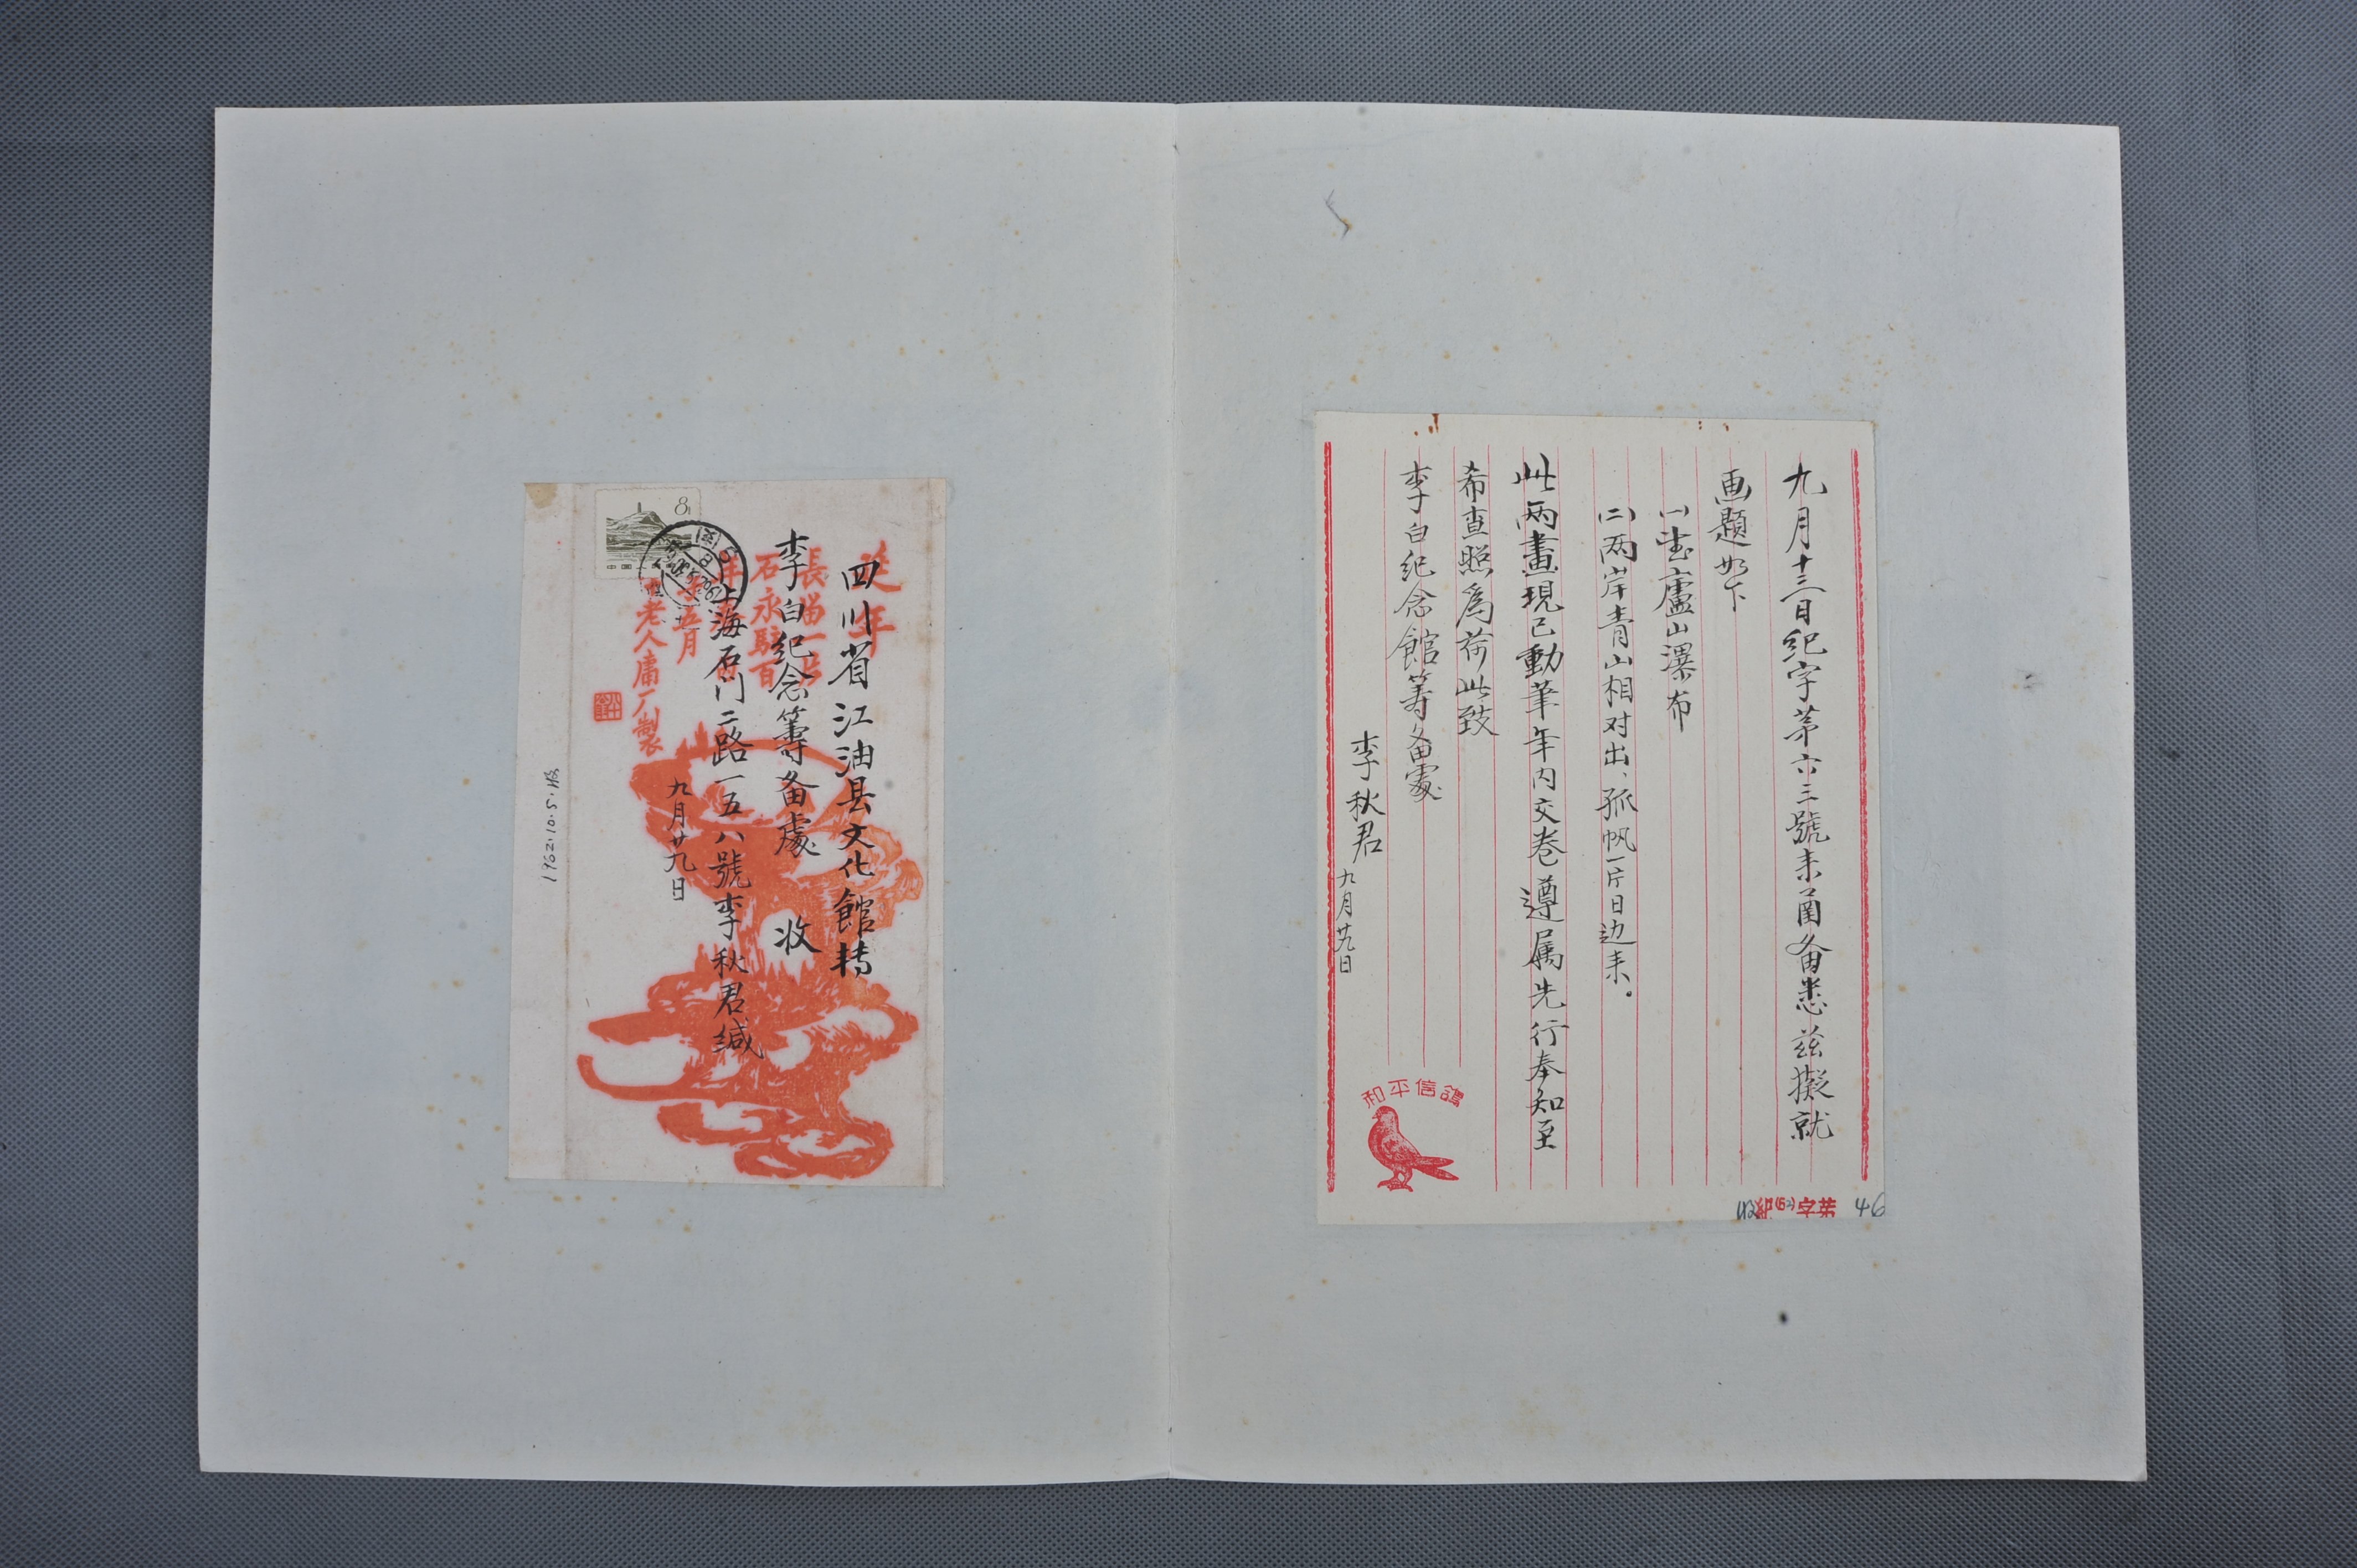 九月十三日紀字苐六三號来函备悉兹擬就
画題如下
(一)望廬山瀑布
(二)两岸青山相对出、孤帆一片日边来。
此两畫現已動筆年内交卷遵属先行奉知至
希查照為荷此致
李白纪念館筹备處
李秋君
九月廿九日
和平信鴿
收紀(62)字苐 46
四川省江油县文化館转
李白纪念籌备處 收
上海石门二路一五八號李秋君缄
九月廿九日
延年
石永駐百
五月
老人庸厂製
8
1962.10.5.收